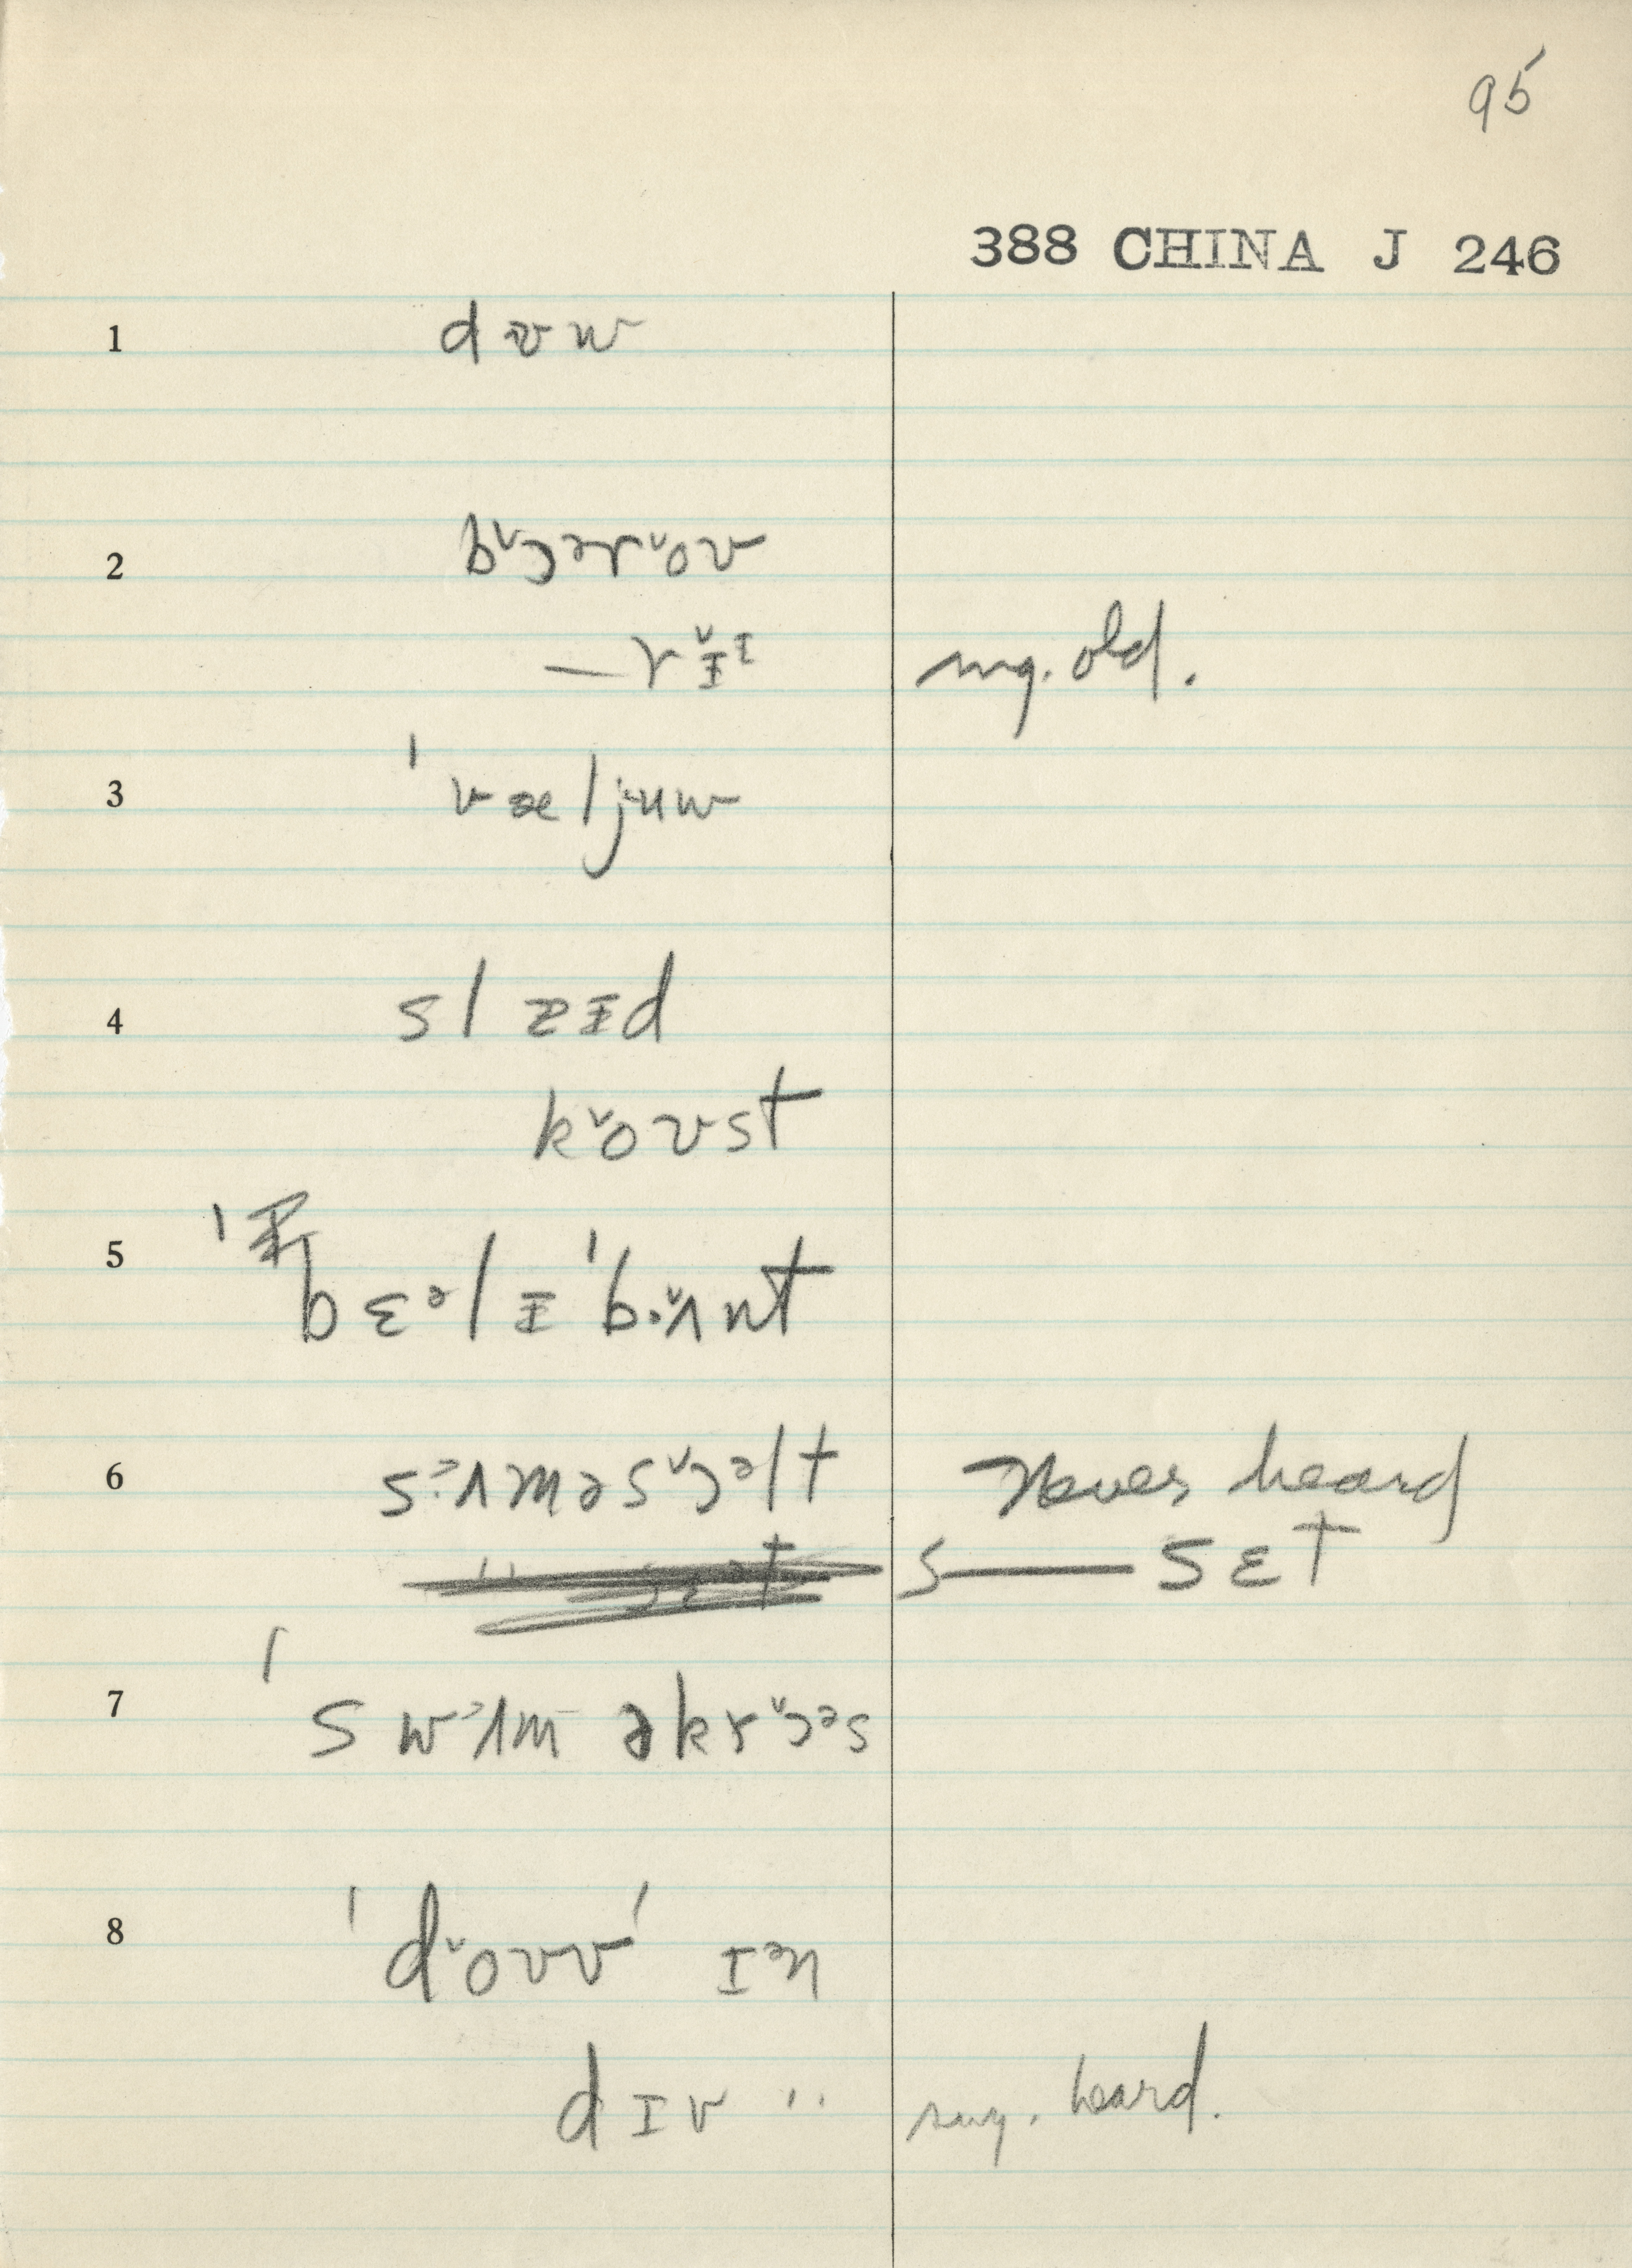 95
388 CHINA J 246
1 dɐw
2 bˇɔərˇoʊ
—rˇɪ̵ᶦ sug. old.
3 ˈvæljuw
4 slæɪ̵d
kˇoʊst
5 bɛᵊlɪ̵ˈbʌnt
6 sʌməsˇɔᵊlt Never heard
s— sɛt
7 ˈswʌm əkrˇɔᵊs
8 ˈdˇoʊvˈ ɪᵊn
dɪv " sug. heard.